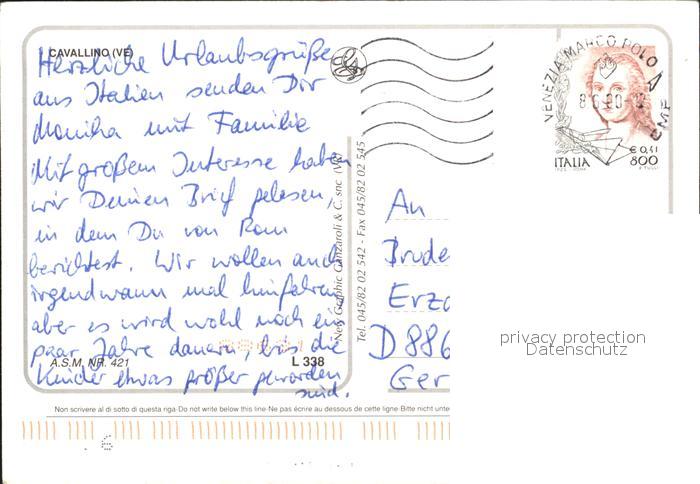 CAVALLINO (VE)
Herzliche Urlaubsgrüße
aus Italien senden Dir
Monika mit Familie
Mit großem Interesse haben
wir Deinen Brief gelesen,
in dem Du von Rom
berichtest. Wir wollen auch
irgendwann mal hinfahren,
aber es wird wohl noch ein
paar Jahre dauern, bis die
Kinder etwas größer geworden
sind.
A.S.M. NR. 421
L 338
Tel. 045/82 02 542 - Fax 045/82 02 545
VENEZIA MARCO POLO
CMP
€ 0,41
ITALIA 800
An
Brude
Erzd
D 886
Ger
privacy protection
Datenschutz
Non scrivere al di sotto di questa riga-Do not write below this line-Ne pas écrire au dessous de cette ligne-Bitte nicht unte